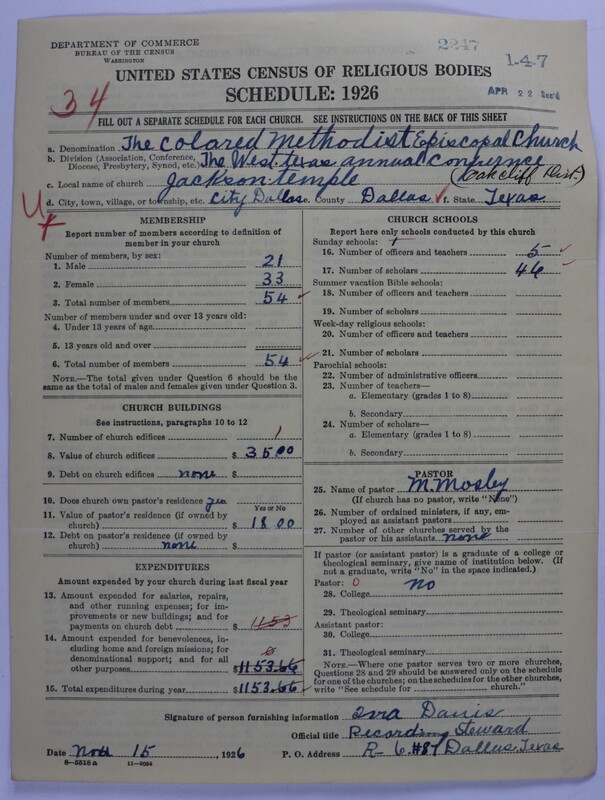 DEPARTMENT OF COMMERCE
BUREAU OF THE CENSUS
WASHINGTON
2247
1-4-7
UNITED STATES CENSUS OF RELIGIOUS BODIES
SCHEDULE: 1926
APR 22 Rec'd
34
FILL OUT A SEPARATE SCHEDULE FOR EACH CHURCH. SEE INSTRUCTIONS ON THE BACK OF THIS SHEET
a. Denomination The Colared Methodist Episcopal Church
b. Division (Association, Conference, Diocese, Presbytery, Synod, etc.) The West texas annual Conference
c. Local name of church Jackson temple (Oakcliff Dist.)
d. City, town, village, or township, etc. City Dallas e. County Dallas f. State Texas
MEMBERSHIP
Report number of members according to definition of
member in your church
Number of members, by sex:
1. Male 21
2. Female 33
3. Total number of members 54
Number of members under and over 13 years old:
4. Under 13 years of age
5. 13 years old and over
6. Total number of members 54
NOTE.—The total given under Question 6 should be the
same as the total of males and females given under Question 3.
CHURCH BUILDINGS
See instructions, paragraphs 10 to 12
7. Number of church edifices 1
8. Value of church edifices $ 3500
9. Debt on church edifices none $
10. Does church own pastor's residence yes
Yes or No
11. Value of pastor's residence (if owned by
church) $ 1800
12. Debt on pastor's residence (if owned by
church) none $
EXPENDITURES
Amount expended by your church during last fiscal year
13. Amount expended for salaries, repairs,
and other running expenses; for im-
provements or new buildings; and for
payments on church debt $ 1153
14. Amount expended for benevolences, in-
cluding home and foreign missions; for
denominational support; and for all
other purposes 0 $1153.66
15. Total expenditures during year $1153.66
CHURCH SCHOOLS
Report here only schools conducted by this church
Sunday schools: 1
16. Number of officers and teachers 5
17. Number of scholars 46
Summer vacation Bible schools:
18. Number of officers and teachers
19. Number of scholars
Week-day religious schools:
20. Number of officers and teachers
21. Number of scholars
Parochial schools:
22. Number of administrative officers
23. Number of teachers—
a. Elementary (grades 1 to 8)
b. Secondary
24. Number of scholars—
a. Elementary (grades 1 to 8)
b. Secondary
PASTOR
25. Name of pastor M. Mosby
(If church has no pastor, write "None")
26. Number of ordained ministers, if any, em-
ployed as assistant pastors
27. Number of other churches served by the
pastor or his assistants none
If pastor (or assistant pastor) is a graduate of a college or
theological seminary, give name of institution below. (If
not a graduate, write "No" in the space indicated.)
Pastor: 0 no
28. College
29. Theological seminary
Assistant pastor:
30. College
31. Theological seminary
NOTE.—Where one pastor serves two or more churches,
Questions 28 and 29 should be answered only on the schedule
for one of the churches; on the schedules for the other churches,
write "See schedule for church."
Signature of person furnishing information Ora Davis
Official title Recording Steward
Date Nov 15, 1926 P. O. Address R 6. #87 Dallas Texas
8—5518 a 11—9034